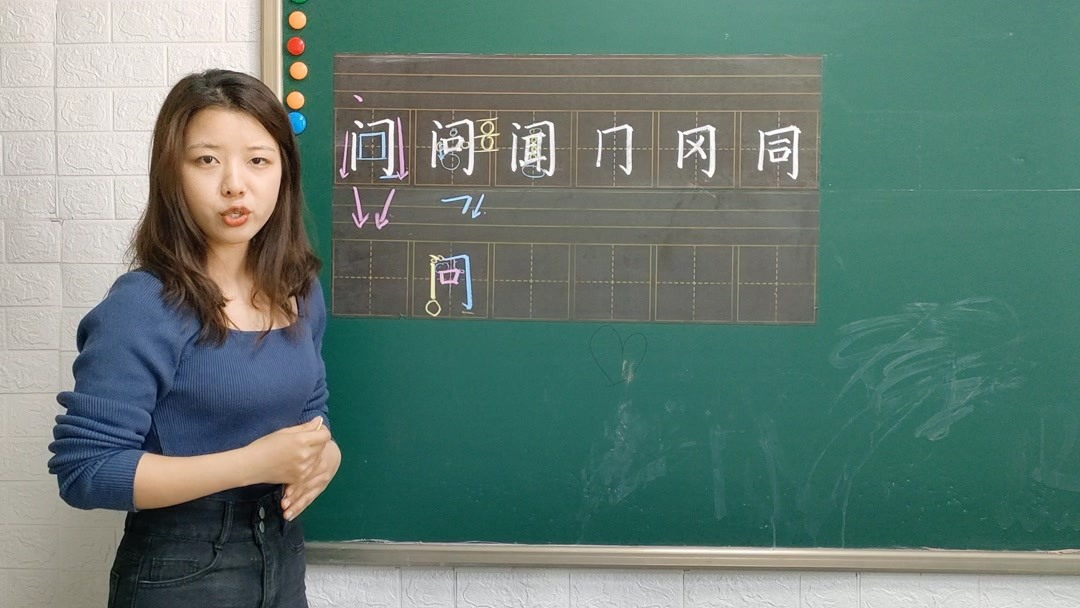 门 问 闻 冂 冈 同
问